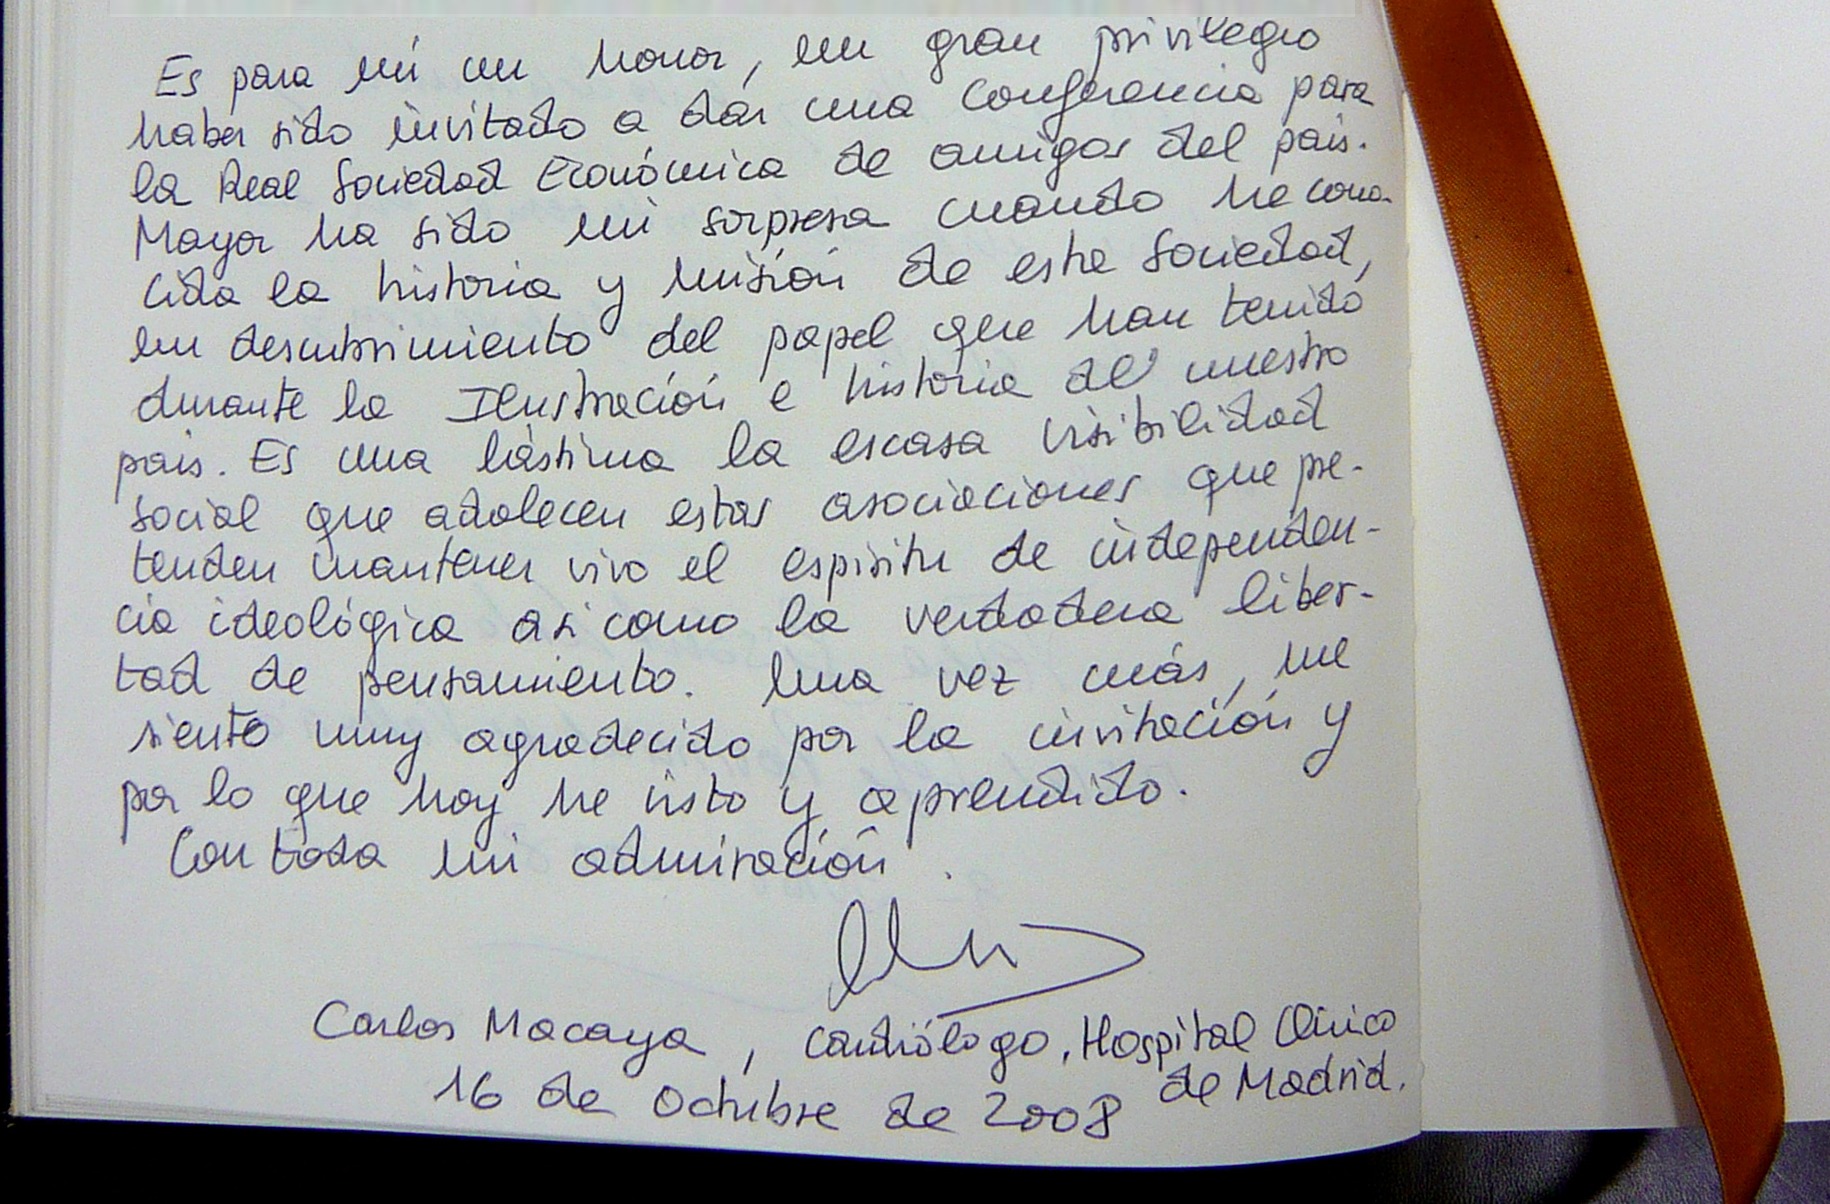 Es para mí un honor, un gran privilegio
haber sido invitado a dar una conferencia para
la Real Sociedad Económica de amigos del país.
Mayor ha sido mi sorpresa cuando he cono-
cido la historia y misión de esta Sociedad,
un descubrimiento del papel que han tenido
durante la Ilustración e historia de nuestro
país. Es una lástima la escasa visibilidad
social que adolecen estas asociaciones que pre-
tenden mantener vivo el espíritu de independen-
cia ideológica así como la verdadera liber-
tad de pensamiento. Una vez más, me
siento muy agradecido por la invitación y
por lo que hoy he visto y aprendido.
Con toda mi admiración.
Carlos Macaya, cardiólogo, Hospital Clínico
de Madrid.
16 de Octubre de 2008